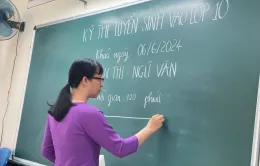 KỲ THI TUYỂN SINH VÀO LỚP 10
Khoá ngày 06/6/2024
THI NGỮ VĂN
gian: 120 phút